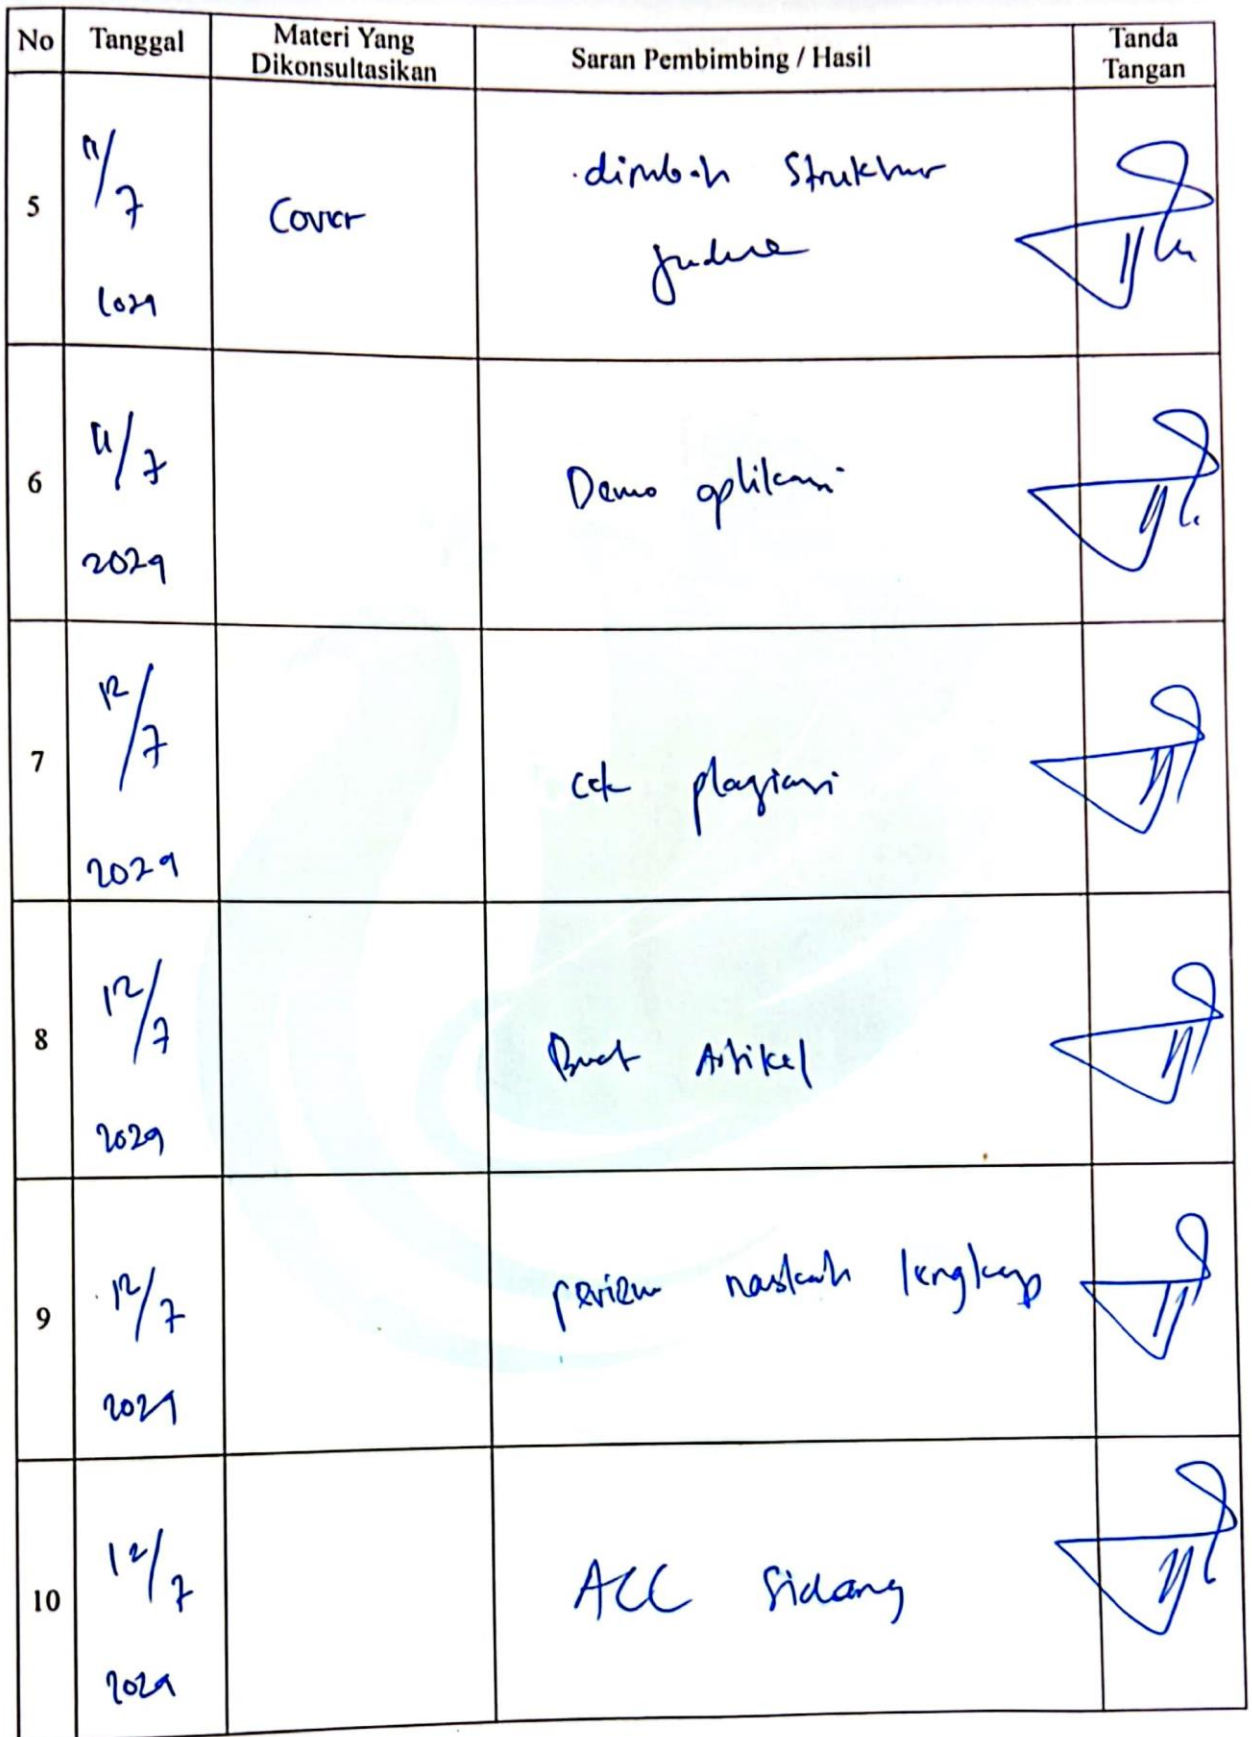 No Tanggal Materi Yang Dikonsultasikan Saran Pembimbing / Hasil Tanda Tangan
5 11/7 2024 Cover dirubah Struktur
judul
6 11/7 2024 Demo aplikasi
7 12/7 2024 cek plagiasi
8 12/7 2024 Buat Artikel
9 12/7 2024 review naskah lengkap
10 12/7 2024 ACC Sidang